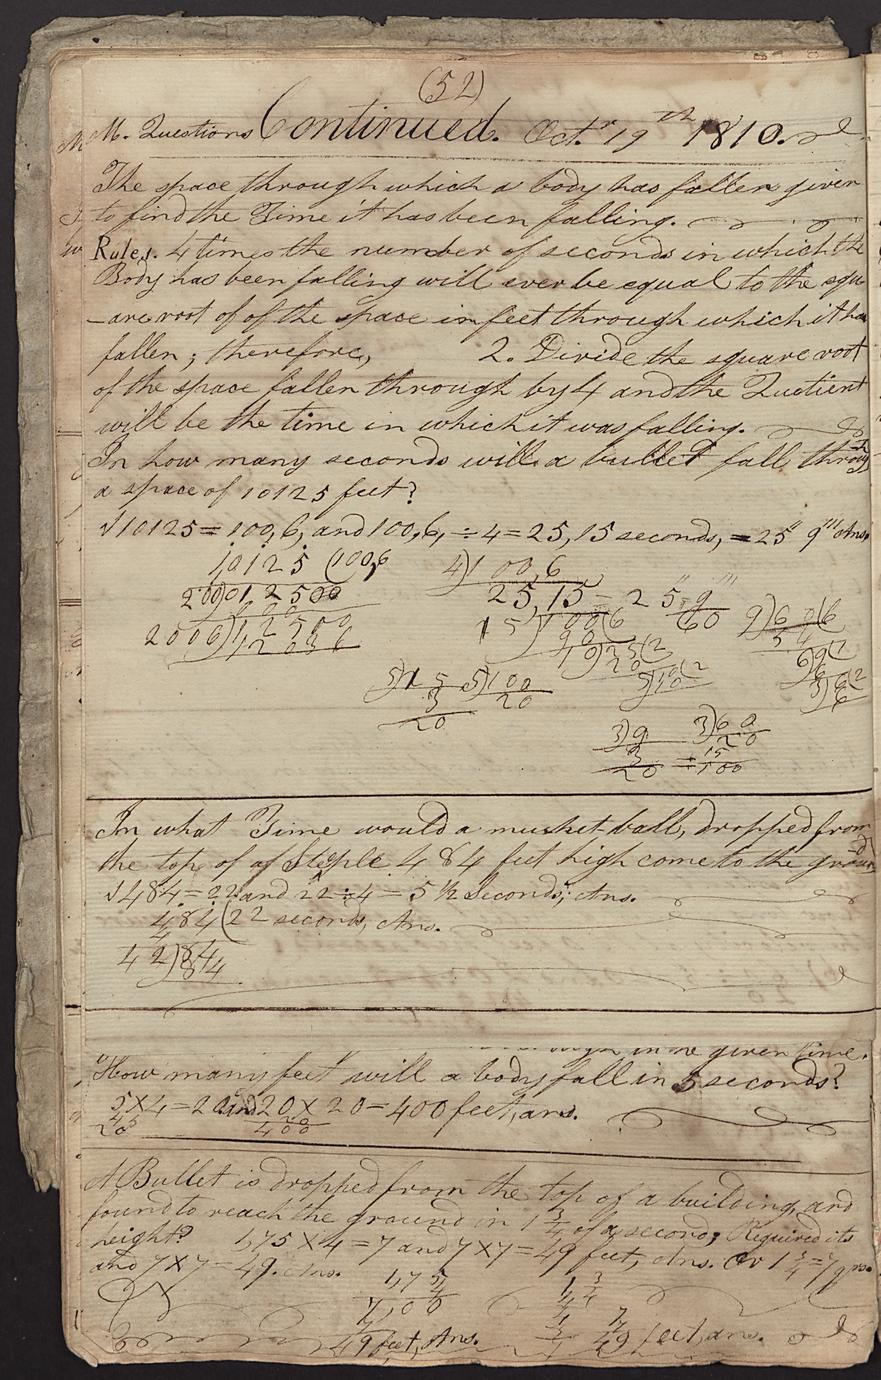 (52)
M. Questions Continued. Oct.r 19th 1810.
The space through which a body has fallen given
to find the Time it has been falling.
Rules. 4 times the number of seconds in which the
Body has been falling will ever be equal to the squ
-are root of of the space in feet through which it ha
fallen; therefore, 2. Divide the square root
of the space fallen through by 4 and the Quotient
will be the time in which it was falling.
In how many seconds will a bullet fall through
a space of 10125 feet?
√10125 = 100,6, and 100,6, ÷ 4 = 25,15 seconds, = 25" 9''' Ans,
10125 (100,6 4)100,6
200)012500 25,15 = 25" 9'''
2006)12500 15)100(6 60 9)60(6
12036 90 54
10)15(2 6)9(1
5)15 5)100 20 5)10(2 6
3 20 10 3)6(2
20 6
3)9 3)60
3 20
20 = 15
100
In what Time would a musket-ball, dropped from
the top of of Steple 484 feet high come to the ground
√484 = 22 and 22 ÷ 4 = 5 1/2 Seconds; Ans.
484(22 seconds, Ans.
4
42)84
84
in the given time.
How many feet will a body fall in 5 seconds?
5×4=20 and 20×20=400 feet, ans.
4 5
20 400
A Bullet is dropped from the top of a building, and
found to reach the ground in 1 3/4 of a second; Required its
height? 1,75 × 4 = 7 and 7×7 = 49 feet, Ans. Or 1 3/4 = 7
and 7×7 = 49. Ans. 1,75 1 3/4
4 4
7,00 7
7
49 feet, Ans. 49 feet, ans.